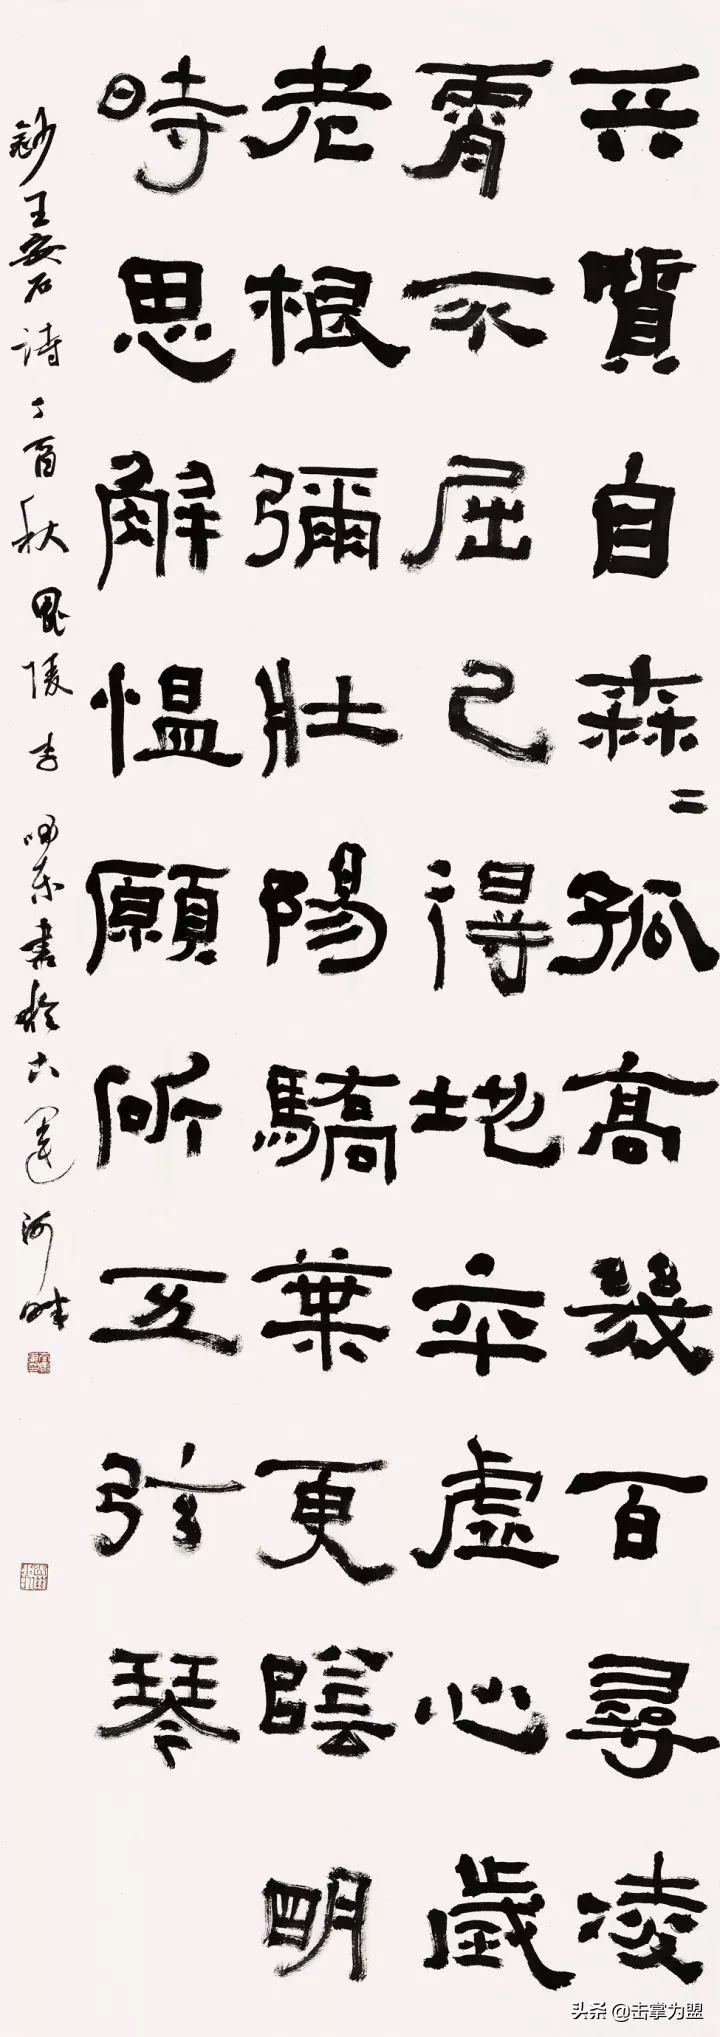 天質自森〻孤高幾百尋凌
霄不屈己得地本虛心歲
老根彌壯陽驕葉更陰明
時思解慍願斫五弦琴
鈔王安石詩丁酉秋毘陵李東書於古運河畔
头条 @击掌为盟